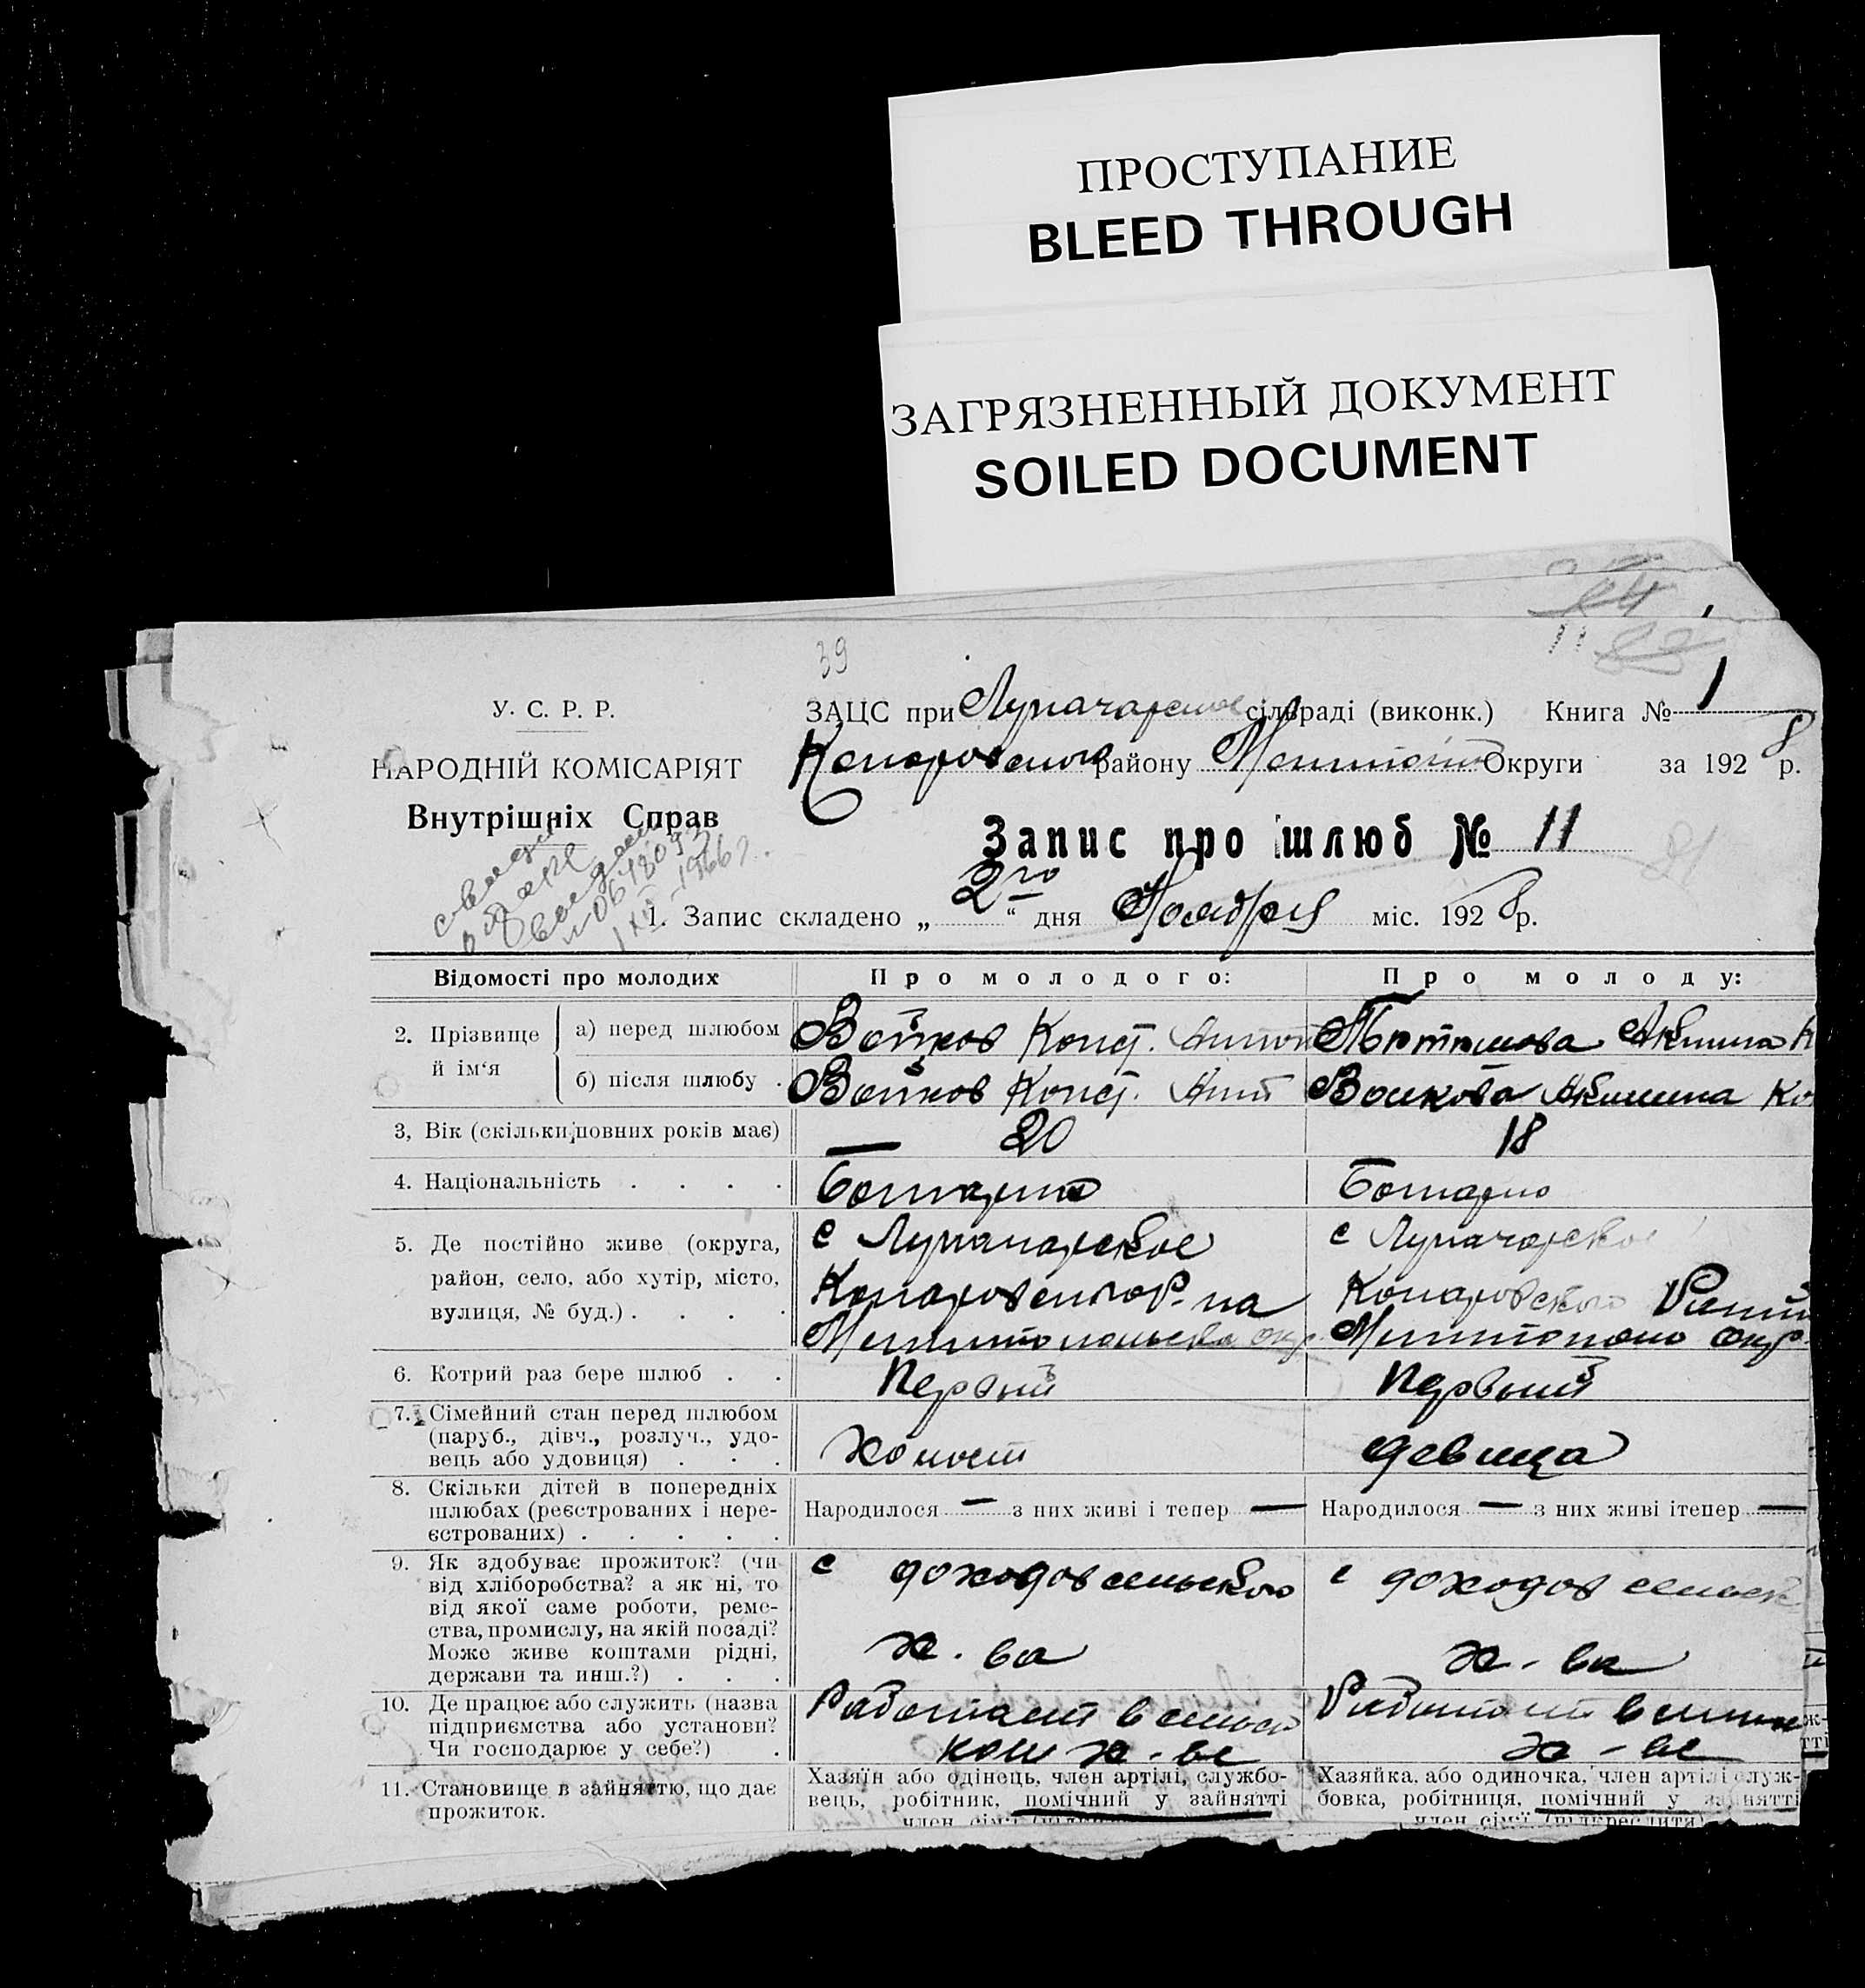 ПРОСТУПАНИЕ
BLEED THROUGH
ЗАГРЯЗНЕННЫЙ ДОКУМЕНТ
SOILED DOCUMENT
39
У. С. Р. Р.
НАРОДНІЙ КОМІСАРІЯТ
Внутрішніх Справ
ЗАЦС при Луначарское сільраді (виконк.) Книга № 1
району Округи за 1928 р.
Запис про шлюб № 11
1. Запис складено „2го“ дня Ноября міс. 1928 р.
Відомості про молодих
Про молодого:
Про молоду:
2. Прізвище й ім‘я
а) перед шлюбом
Войков Конст. Антон
Акилина К
б) після шлюбу .
Войков Конст. Ант
Войкова Акилина Ко
3, Вік (скільки повних років має)
20
18
4. Національність . . . .
Болгарин
Болгарка
5. Де постійно живе (округа,
район, село, або хутір, місто,
вулиця, № буд.) . . . .
с Луначарское
р-на
окр.
с Луначарское
окр.
6. Котрий раз бере шлюб . .
Первый
Первый
7. Сімейний стан перед шлюбом
(паруб., дівч., розлуч., удо-
вець або удовиця) . . .
холост
девица
8. Скільки дітей в попередніх
шлюбах (реєстрованих і нере-
єстрованих) . . . . .
Народилося — з них живі і тепер —
Народилося — з них живі ітепер —
9. Як здобуває прожиток? (чи
від хліборобства? а як ні, то
від якої саме роботи, реме-
ства, промислу, на якій посаді?
Може живе коштами рідні,
держави та инш.?) . . .
с доходов сельского
х-ва
с доходов сельск
х-ва
10. Де працює або служить (назва
підприємства або установи?
Чи господарює у себе?) .
Работает в сельск
ком х-ве
Работает в сельск
х-ве
11. Становище в зайняттю, що дає
прожиток.
Хазяїн або одінець, член артілі, службо-
вець, робітник, помічний у зайнятті
член сім'ї
Хазяйка, або одиночка, член артілі служ-
бовка, робітниця, помічний у зайнятті
член сім'ї (підкреслити)